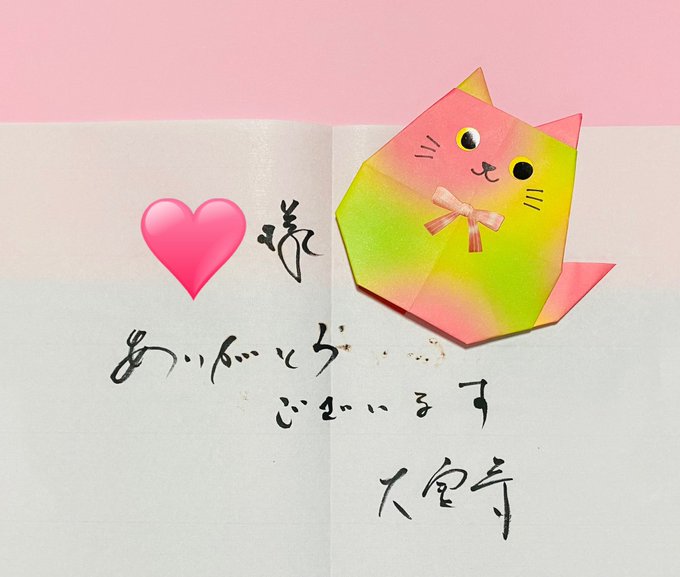 様
ありがとう
ございます
大宝寺